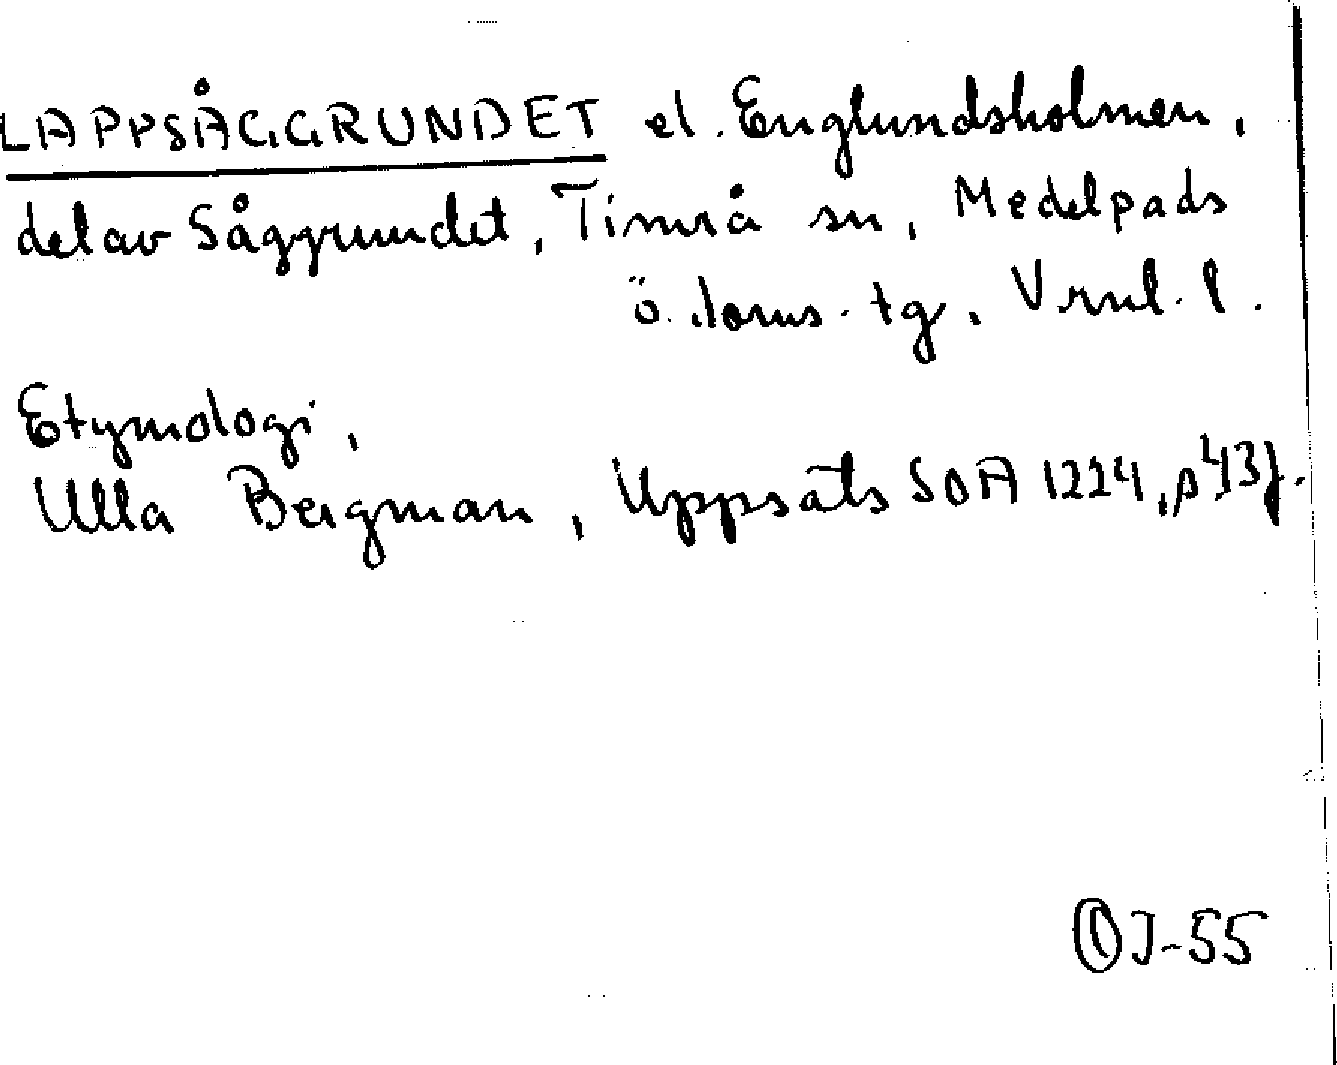 LAPPSÅGGRUNDET el. Englundsholmen,
del av Såggrundet, Timrå sn, Medelpads
ö. doms. tg, Vrnl. l.
Etymologi,
Ulla Bergman, Uppsats SOA 1224, s 43f.
J-55